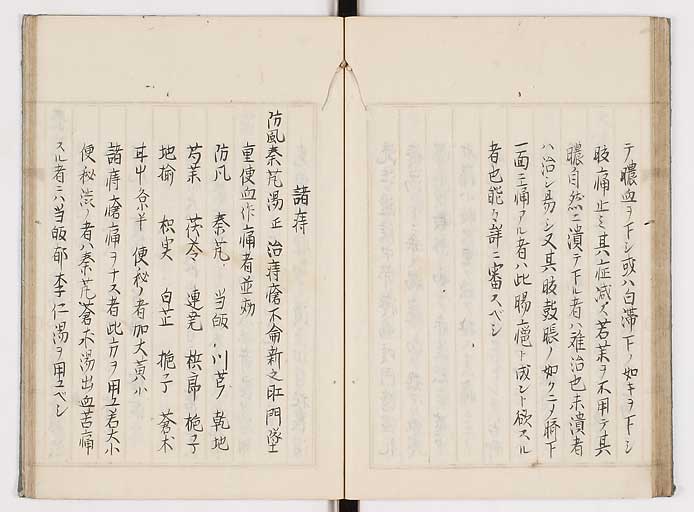 テ膿血ヲ下シ或ハ白滞下ノ如キヲ下シ
肢痛止ミ其症減ズ若薬ヲ不用テ其
膿自然ニ潰テ下ル者ハ難治也未潰者
ハ治シ易シ又其肢鼓脹ノ如クニノ臍下
一面ニ痛アル者ハ此腸癰ト成ント欲スル
者也能々詳ニ審スベシ
諸痔
防風秦艽湯 正 治痔瘡不侖新之肛門墜
重便血作痛者並効
防凡 秦艽 当皈 川芎 乾地
芍薬 茯苓 連翹 梹郎 梔子
地榆 枳実 白芷 梔子 蒼朮
耳中各半 便秘ノ者加大黄小
諸痔瘡痛ヲナス者此方ヲ用ユ若大小
便秘渋ノ者ハ秦艽蒼朮湯出血苦痛
スル者ニハ当皈郁李仁湯ヲ用ユベシ